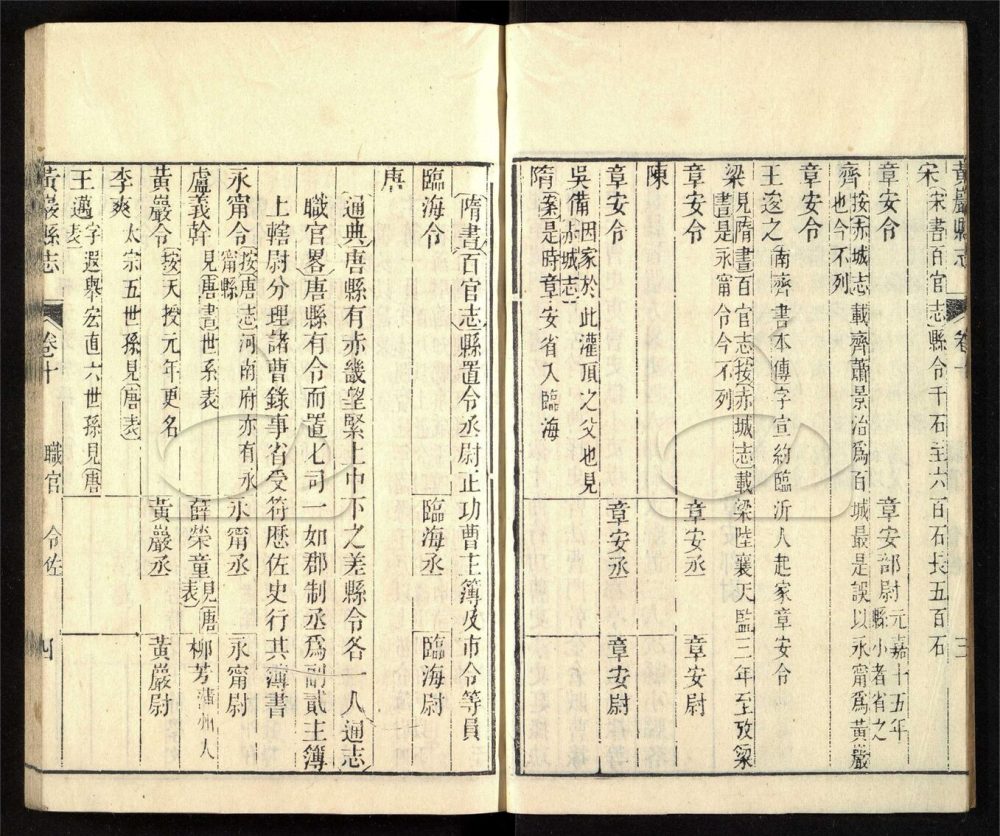 黃巖縣志 卷十 三
宋 宋書百官志縣令千石至六百石長五百石
章安令 章安部尉 元嘉十五年縣小者省之
齊 按赤城志載齊蕭景治為百城最是誤以永甯為黃巖也今不列
章安令
王逡之 南齊書本傳字宣約臨沂人起家章安令
梁 見隋書百官志按赤城志載梁陸襄天監三年至攷梁書是永甯令今不列
章安令 章安丞 章安尉
陳
章安令 章安丞 章安尉
吳備 因家於此灌頂之父也見赤城志
隋 案是時章安省入臨海
隋書百官志縣置令丞尉正功曹主簿及市令等員
臨海令 臨海丞 臨海尉
唐
通典唐縣有赤畿望緊上中下之差縣令各一人通志
職官畧唐縣有令而置七司一如郡制丞為副貳主簿
上轄尉分理諸曹錄事省受符歷佐史行其簿書
永甯令 按唐志河南府亦有永甯縣 永甯丞 永甯尉
盧義幹 見唐書世系表 薛榮童 見唐表 柳芳 蒲州人
黃巖令 按天授元年更名 黃巖丞 黃巖尉
李爽 太宗五世孫見唐表
王邁 字遐舉宏直六世孫見唐表
黃巖縣志 卷十 職官 令佐 四